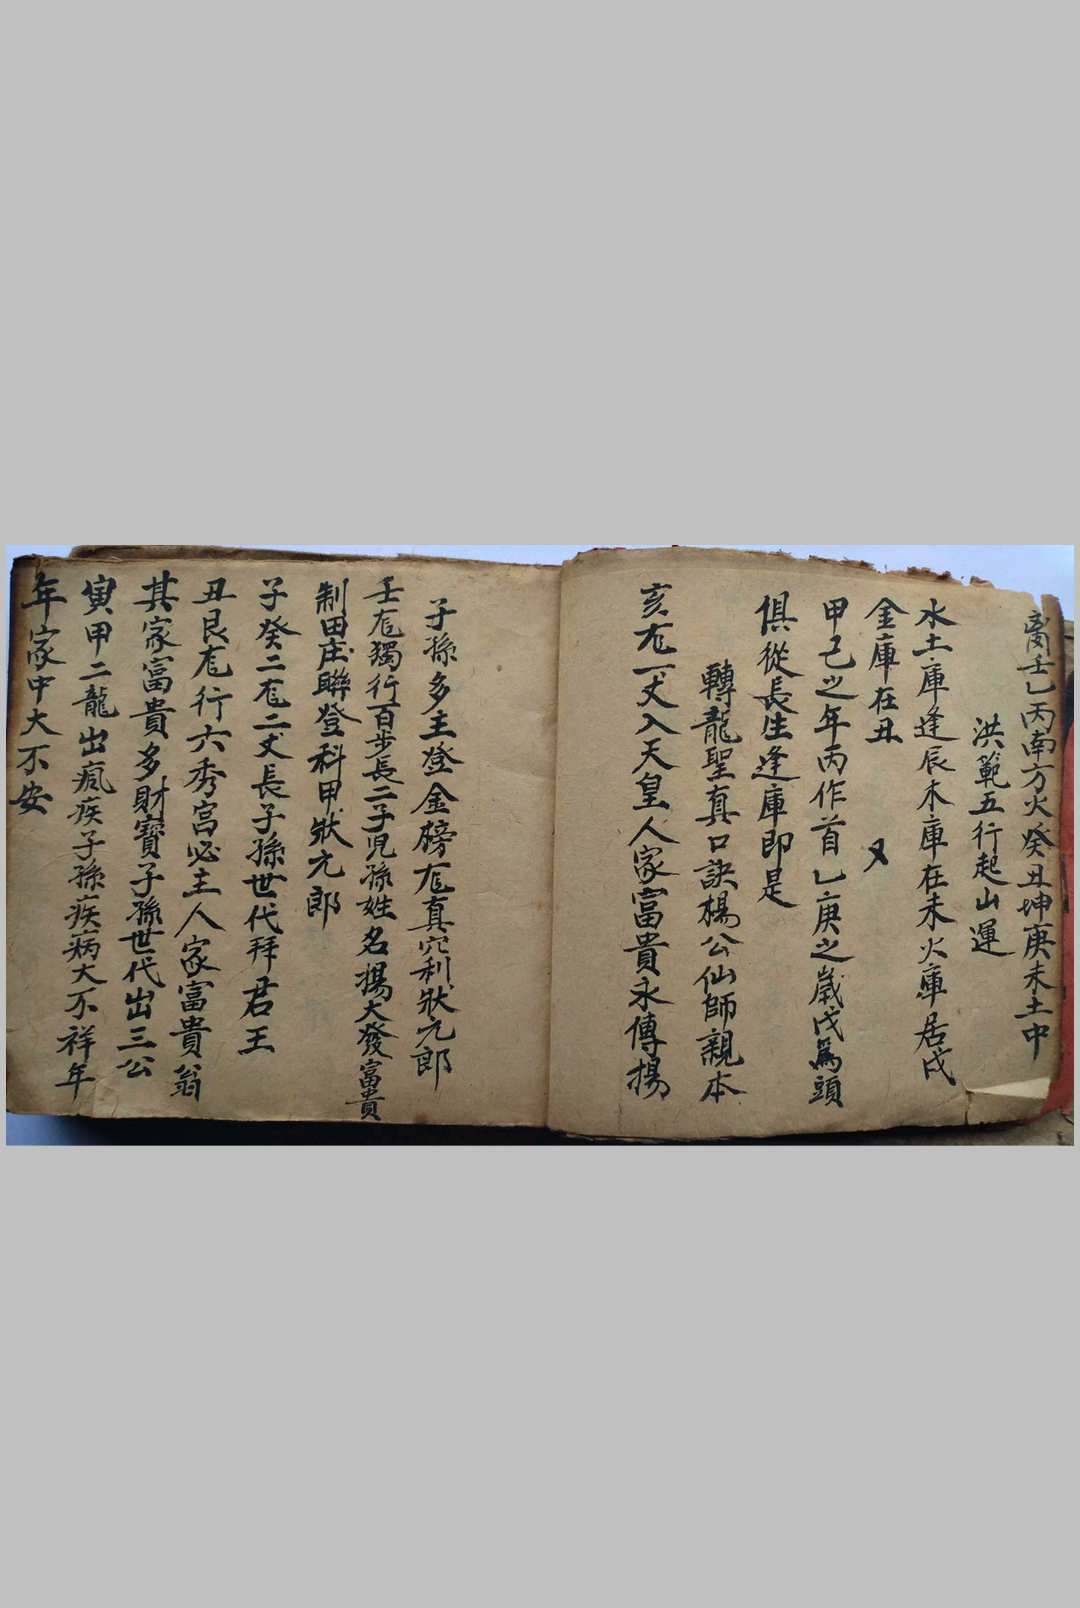 離壬乙丙南方火癸丑坤庚未土中
洪範五行起山運
水土庫逢辰木庫在未火庫居戌
金庫在丑　又
甲己之年丙作首乙庚之歲戊為頭
俱從長生逢庫即是
轉龍聖真口訣楊公仙師親本
亥尨一丈入天皇人家富貴永傳揚
子孫多主登金榜尨真穴利狀元郎
壬尨獨行百步長二子児孫姓名揚大發富貴
制田庄聯登科甲狀元郎
子癸二尨二丈長子孫世代拜君王
丑艮尨行六秀宮必主人家富貴翁
其家富貴多財寶子孫世代出三公
寅甲二龍出瘋疾子孫疾病大不祥年
年家中大不安